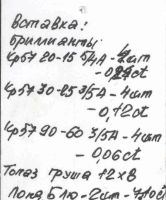 Вставка:
Бриллианты
Кр57 20-15 5/4А - 2шт
- 0,14ct
Кр57 30-25 3/5А - 4шт
- 0,12ct
Кр57 90-60 3/5А - 4шт
- 0,06ct
Топаз груша 12х8
Лона Блю - 2шт -